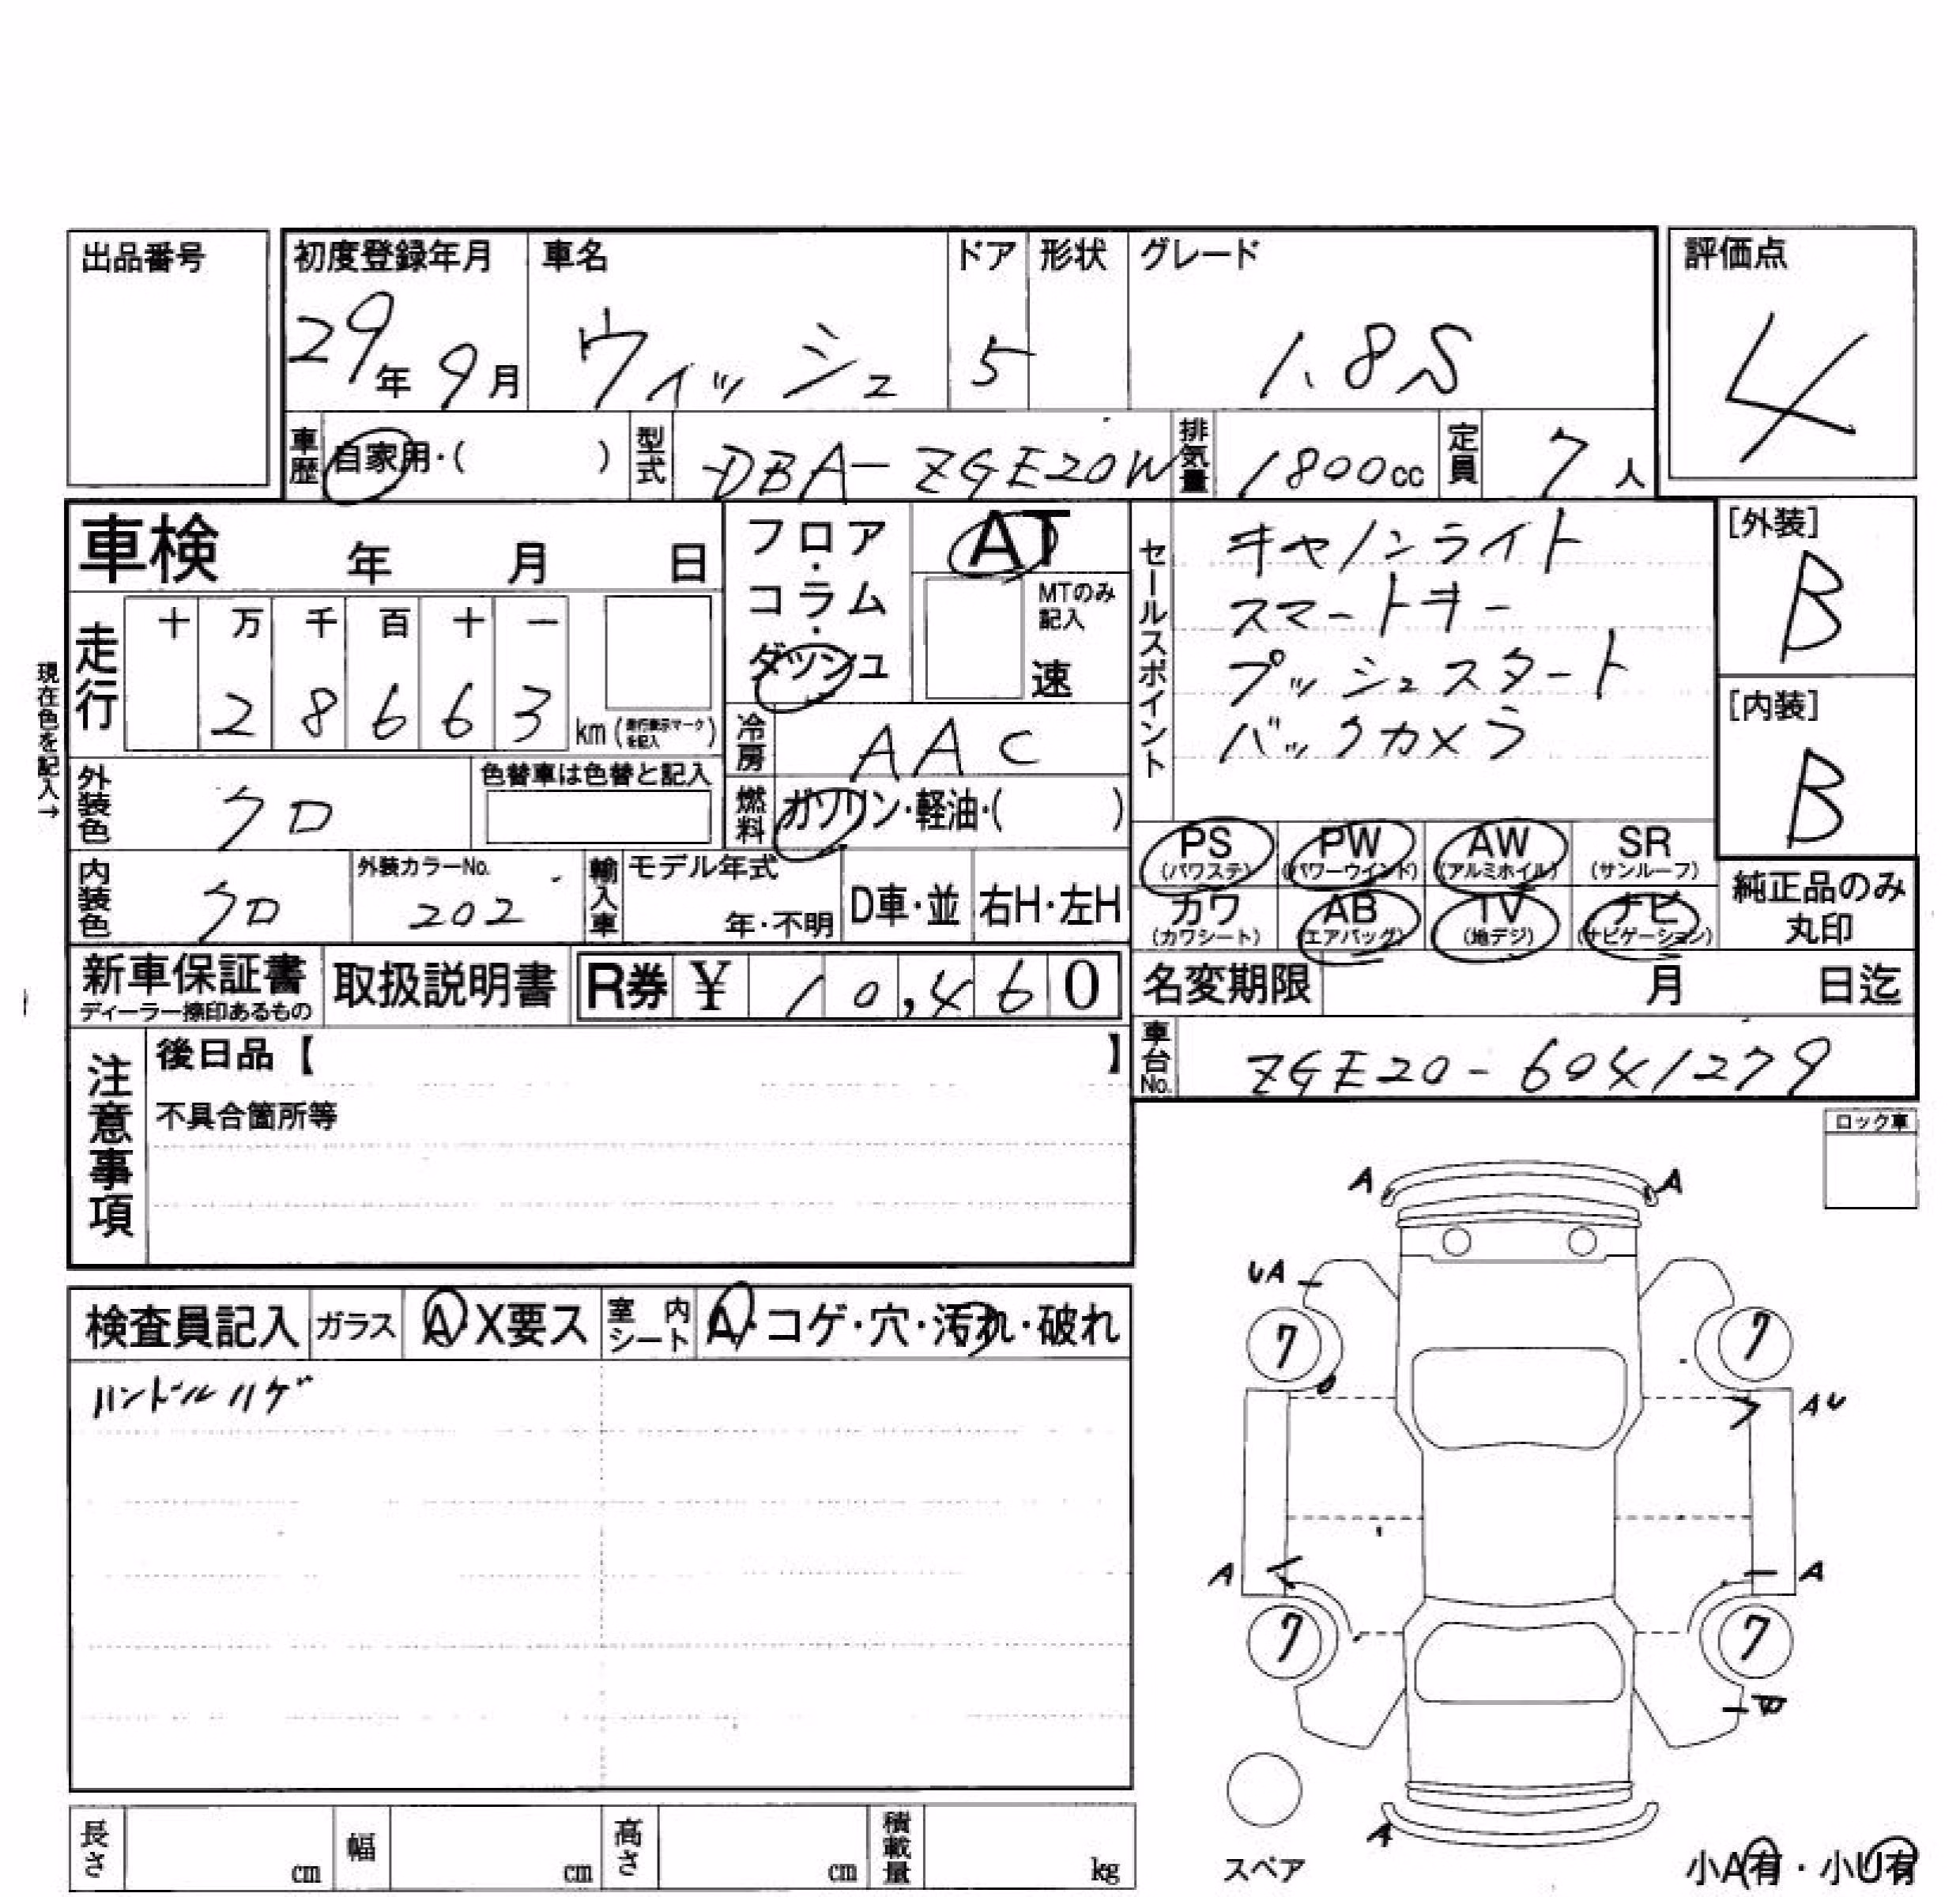 出品番号
初度登録年月 車名 ドア 形状 グレード 評価点
29年 9月 ウィッシュ 5 1.8S 4
車歴 自家用・( ) 型式 DBA-ZGE20W 排気量 1800cc 定員 7人
車検 年 月 日
フロア・コラム・ダッシュ
AT
MTのみ記入
速
セールスポイント
キセノンライト
スマートキー
プッシュスタート
バックカメラ
[外装]
B
[内装]
B
現在色を記入→
走行 十 万 千 百 十 一
2 8 6 6 3 km
冷房 AAC
外装色 クロ 色替車は色替と記入
燃料 ガソリン・軽油・( )
PS PW AW SR
(パワステ) (パワーウインド) (アルミホイル) (サンルーフ)
カワ AB TV ナビ
(カワシート) (エアバッグ) (地デジ) (ナビゲーション)
純正品のみ
丸印
内装色 クロ 外装カラーNo. 202 輸入車 モデル年式 年・不明 D車・並 右H・左H
新車保証書 取扱説明書 R券 ¥ 10,460
ディーラー捺印あるもの
名変期限 月 日迄
車台No. ZGE20-6041279
注意事項
後日品【 】
不具合箇所等
ロック車
検査員記入 ガラス A・X要ス 室内シート A・コゲ・穴・汚れ・破れ
ハンドルハゲ
A A
UA
7 7
AU
A A
7 7
A
スペア
長さ cm 幅 cm 高さ cm 積載量 kg
小A有・小U有